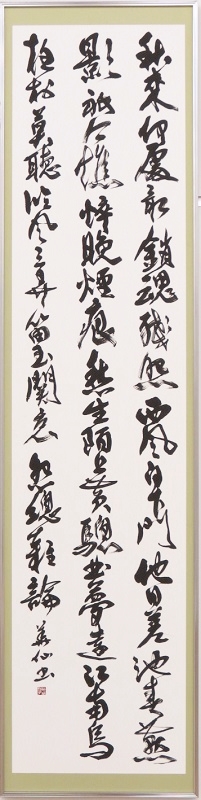 秋來何處最銷魂殘照西風白下門他日差池春燕
影祗今憔悴晚煙痕愁生陌上黃驄曲夢遠江南烏
夜村莫聽臨風三弄笛玉關哀怨總難論 華仙書